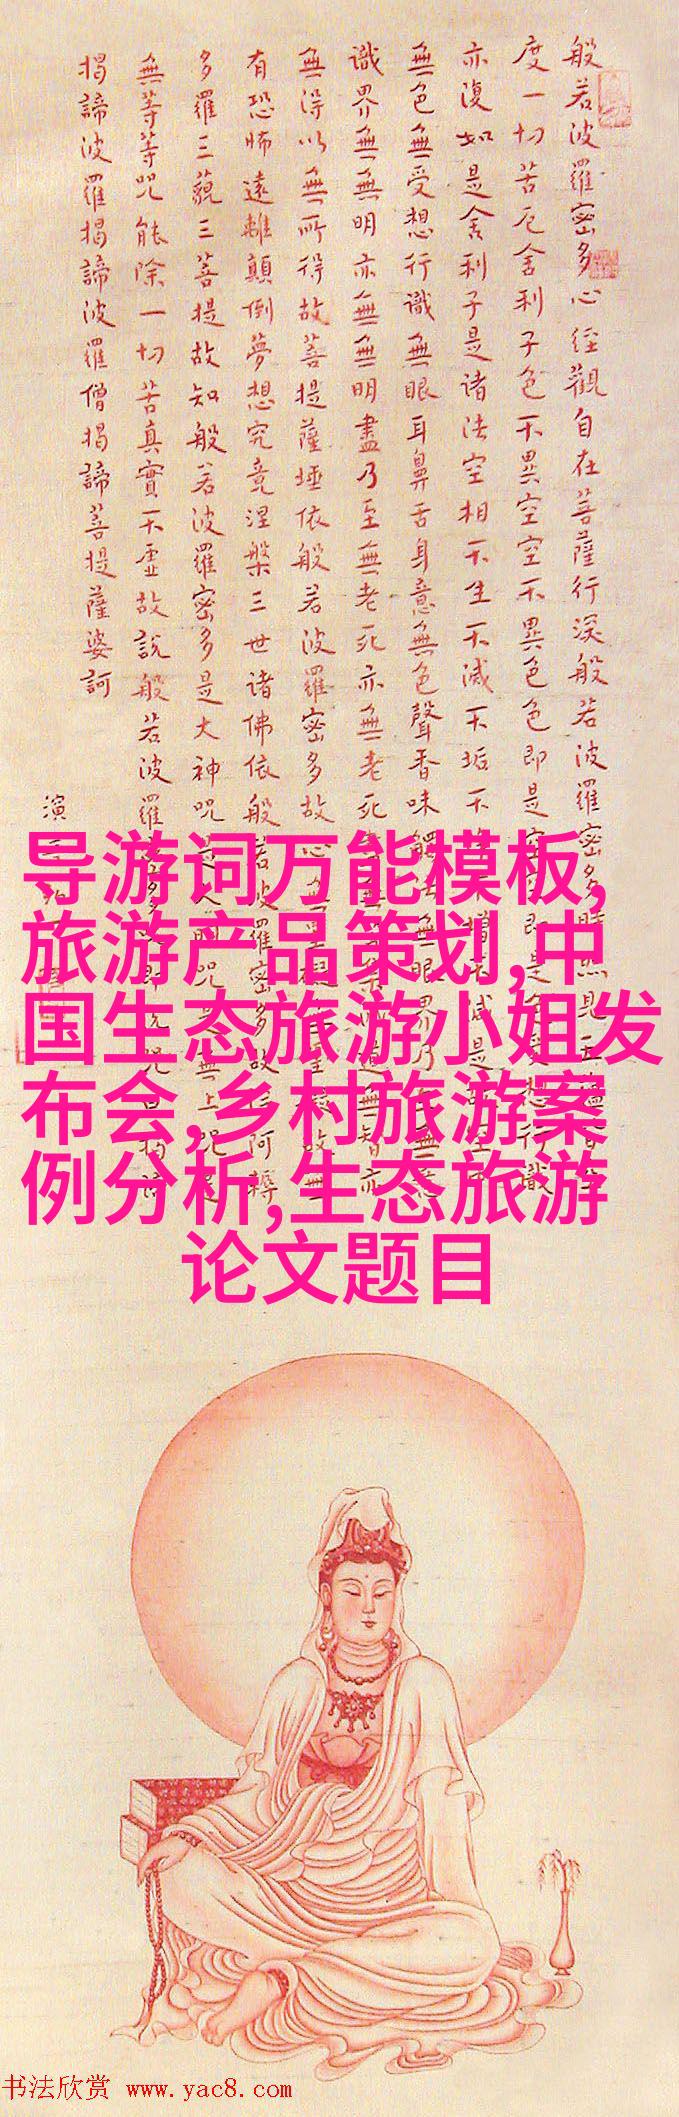 般若波羅密多心经觀自在菩薩行深般若波羅密多時照見五
度一切苦厄舍利子色不異空空不異色色即是空即是色受想行識
亦復如是舍利子是諸法空相不生不滅不垢不增不減是
無色無受想行識無眼耳鼻舌身意無色聲香味觸法無眼界乃至無意
識界無無明亦無無明盡乃至無老死亦無老死無智亦
無得以無所得故菩提薩埵依般若波羅密多故心無罣礙故無
有恐怖遠離顛倒夢想究竟涅槃三世諸佛依般若波羅密多故得阿耨
多羅三藐三菩提故知般若波羅密多是大神咒是大明咒是無上咒是
無等等咒能除一切苦真實不虚故説般若波羅密多咒即説咒曰揭諦
揭諦波羅揭諦波羅僧揭諦菩提薩婆訶
演
导游词万能模板,
旅游产品策划,中
国生态旅游小姐发
布会,乡村旅游案
例分析,生态旅游
论文题目
书法欣赏 www.yac8.com